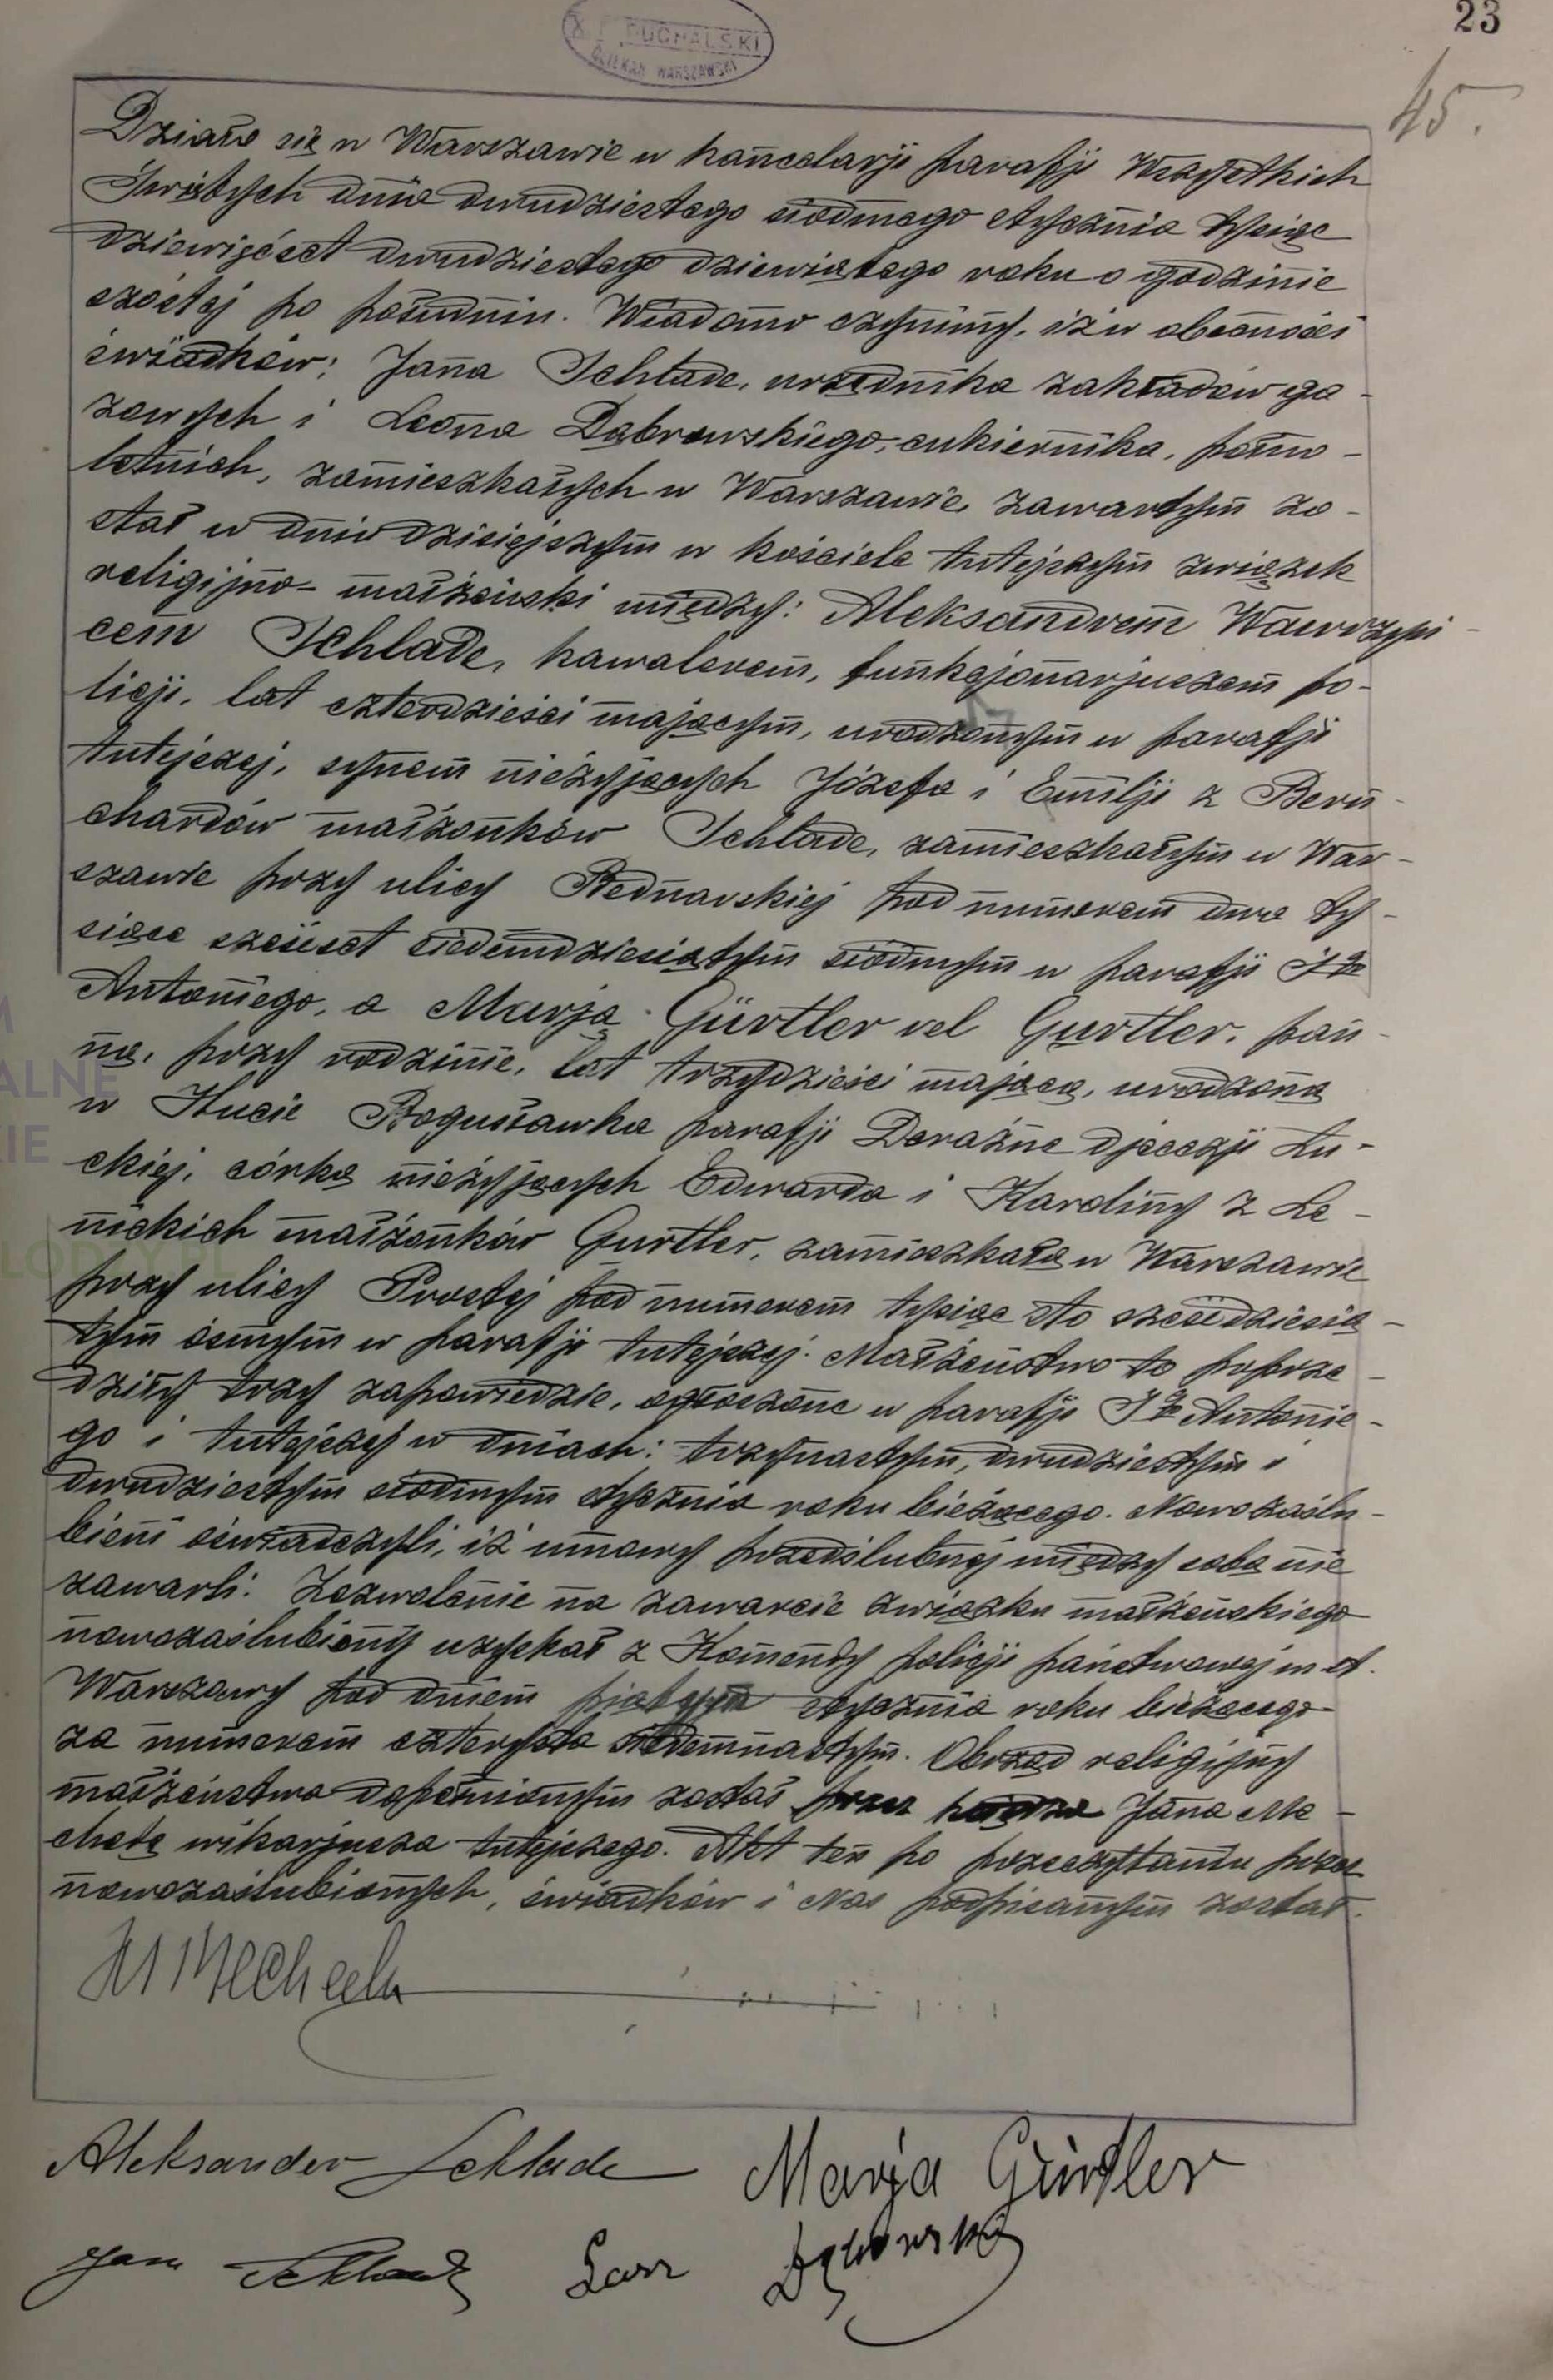 23
45.
PUCHALSKI
DZIEKAN WARSZAWSKI
Działo się w Warszawie w kancelarji parafji Wszystkich
Świętych dnia dwudziestego siódmego stycznia tysiąc
dziewięćset dwudziestego dziewiątego roku o godzinie
szóstej po południu. Wiadomo czynimy, iż w obecności
świadków: Jana Schlade, urzędnika zakładów ga-
zowych i Leona Dąbrowskiego, cukiernika, pełno-
letnich, zamieszkałych w Warszawie, zawartym zo-
stał w dniu dzisiejszym w kościele tutejszym związek
religijno-małżeński między: Aleksandrem Wawrzyń-
cem Schlade, kawalerem, funkcjonarjuszem po-
licji, lat czterdzieści mającym, urodzonym w parafji
tutejszej, synem nieżyjących Józefa i Emilji z Bern-
chardów małżonków Schlade, zamieszkałym w War-
szawie przy ulicy Bednarskiej pod numerem dwa ty-
siące sześćset siedemdziesiątym siódmym w parafji Śgo
Antoniego, a Marją Gürtler vel Gurtler, pan-
ną, przy rodzinie, lat trzydzieści mającą, urodzoną
w Hucie Bogusławka parafji Deraźne djecezji Łu-
ckiej, córką nieżyjących Edwarda i Karoliny z Le-
nickich małżonków Gurtler, zamieszkałą w Warszawie
przy ulicy Prostej pod numerem tysiąc sto sześćdziesią-
tym ósmym w parafji tutejszej. Małżeństwo to poprze-
dziły trzy zapowiedzie, ogłoszone w parafji Śgo Antonie-
go i tutejszej w dniach: trzynastym, dwudziestym i
dwudziestym siódmym stycznia roku bieżącego. Nowozaślu-
bieni oświadczyli, iż umowy przedślubnej między sobą nie
zawarli. Zezwolenie na zawarcie związku małżeńskiego
nowozaślubiony uzyskał z Komendy policji państwowej m. st.
Warszawy pod dniem piątym stycznia roku bieżącego
za numerem czterysta siedemnastym. Obrzęd religijny
małżeństwa dopełnionym został przez księdza Jana Me-
chełę wikarjusza tutejszego. Akt ten po przeczytaniu przez
nowozaślubionych, świadków i Nas podpisanym został.
Aleksander Schlade Marja Gürtler
Jan Schlade Leon Dąbrowski